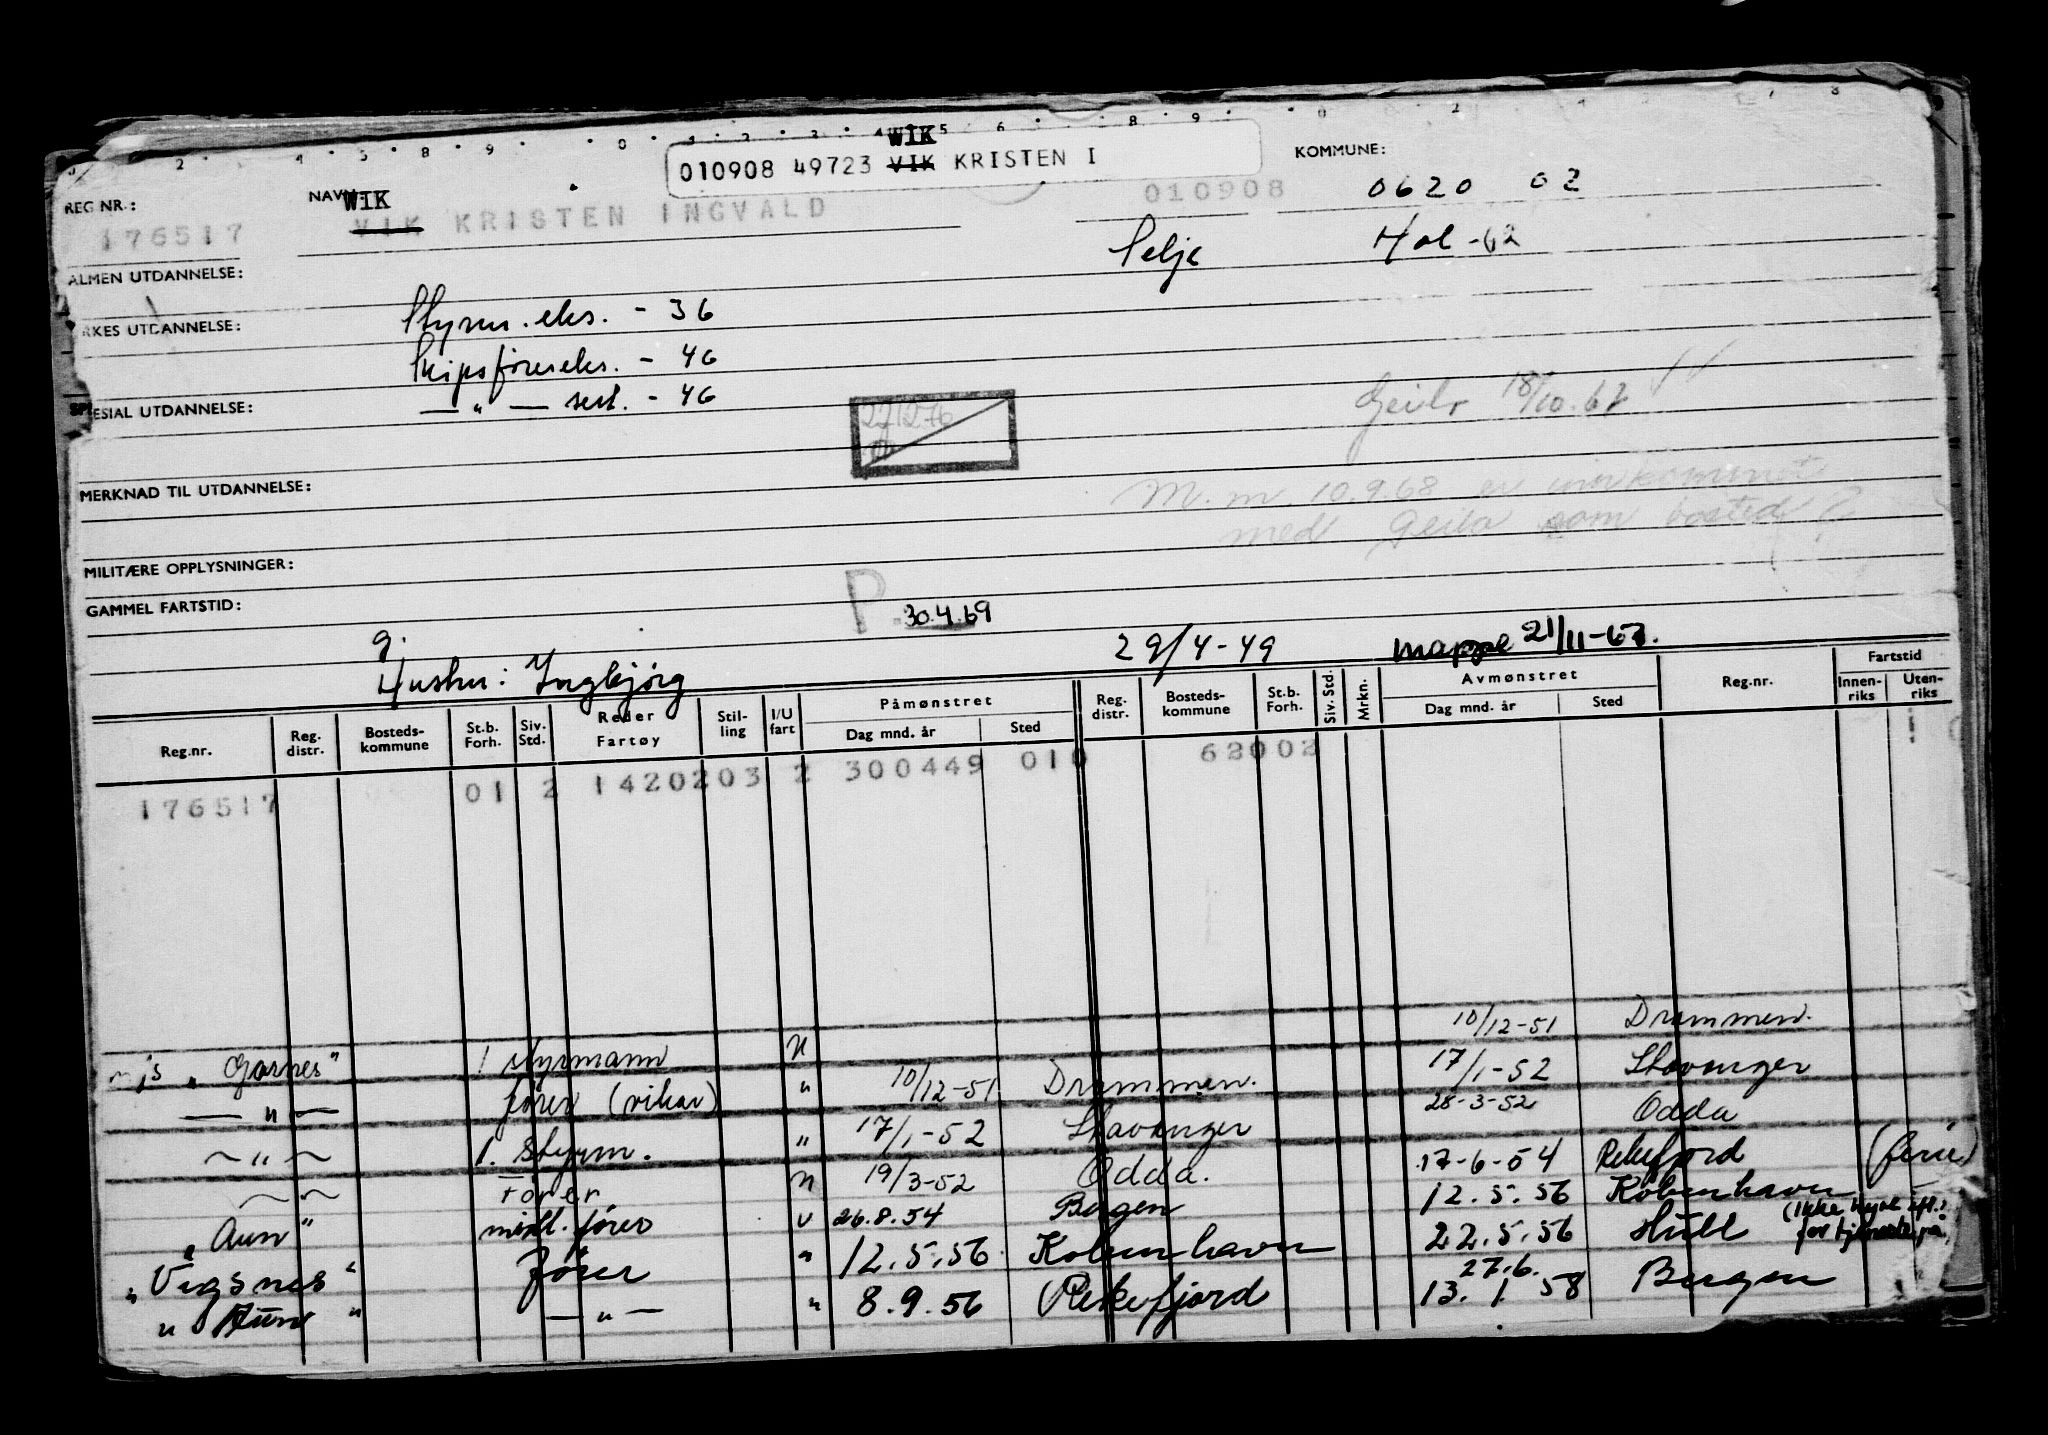 WIK
010908 49723 VIK KRISTEN I
KOMMUNE:
REG NR.: NAVN WIK 010908 0620 02
176517 VIK KRISTEN INGVALD
Selje Hol -62
ALMEN UTDANNELSE:
Styrm. eks. - 36
RKES UTDANNELSE:
Skipsførereks. - 46
— " — sert. - 46
SPESIAL UTDANNELSE:
Geilo 18/10.67
MERKNAD TIL UTDANNELSE:
M. m. 10.9.68 er innkommet
med Geilo som bosted
MILITÆRE OPPLYSNINGER:
GAMMEL FARTSTID:
P. 30.4.69
g.
29/4-49 mappe 21/11-67.
Hustru: Ingbjørg
Reg.nr. Reg. distr. Bosteds-kommune St.b. Forh. Siv. Std. Reder Fartøy Stil-ling I/U fart Påmønstret Dag mnd. år Sted Reg. distr. Bosteds-kommune St.b. Forh. Siv. Std. Mrkn. Avmønstret Dag mnd. år Sted Reg.nr. Fartstid Innen-riks Uten-riks
176517 01 2 1420203 2 300449 010 62002
m/s "Garnes" 1 styrmann u 10/12-51 Drammen.
— " — fører (vikar) " 10/12-51 Drammen. 17/1-52 Stavanger
~ " ~ 1. Styrm. " 17/1-52 Stavanger 28-3-52 Odda
~ ~ Fører u 19/3-52 Odda. 17-6-54 Rekefjord (ferie)
" Aun" midl. fører u 26.8.54 Bergen 12.5.56 København
" Vigsnes " Fører " 12.5.56 København 22.5.56 Hull (ikke
27.6.
" Aun " — " — " 8.9.56 Rekefjord 13.1.58 Bergen